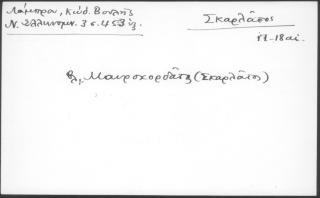 Λάμπρου, Κώδ. Βουλῆς
Ν. Ἑλληνομν. 3 σ. 453 ἑξ.
Σκαρλᾶτος
17-18 αἰ.
βλ. Μαυροκορδᾶτος (Σκαρλᾶτος)